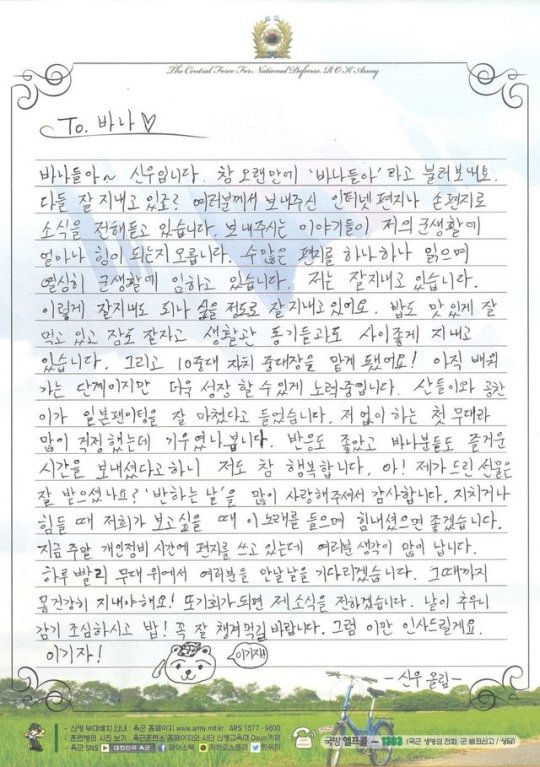 The Central Force For National Defense, R O K Army
To. 바나♡
바나들아~ 신우입니다. 참 오랜만에 '바나들아'라고 불러보내요.
다들 잘 지내고 있죠? 여러분께서 보내주신 인터넷 편지나 손편지로
소식을 전해듣고 있습니다. 보내주시는 이야기들이 저의 군생활에
얼마나 힘이 되는지 모릅니다. 수많은 편지를 하나하나 읽으며
열심히 군생활에 임하고 있습니다. 저는 잘지내고 있습니다.
이렇게 잘지내도 되나 싶을 정도로 잘 지내고 있어요. 밥도 맛있게 잘
먹고 있고 잠도 잘자고 생활관 동기들과도 사이좋게 지내고
있습니다. 그리고 10중대 자치 중대장을 맡게 됐어요! 아직 배워
가는 단계이지만 더욱 성장 할 수 있게 노력중입니다. 산들이와 공찬
이가 일본팬미팅을 잘 마쳤다고 들었습니다. 저 없이 하는 첫 무대라
많이 걱정했는데 기우였나 봅니다. 반응도 좋았고 바나분들도 즐거운
시간을 보내셨다고하니 저도 참 행복합니다. 아! 제가 드린 선물은
잘 받으셨나요? '반하는 날'을 많이 사랑해주셔서 감사합니다. 지치거나
힘들 때 저희가 보고싶을 때 이 노래를 들으며 힘내셨으면 좋겠습니다.
지금 주말 개인정비 시간에 편지를 쓰고 있는데 여러분 생각이 많이 납니다.
하루 빨리 무대 위에서 여러분을 만날 날을 기다리겠습니다. 그때까지
몸건강히 지내야해요! 또 기회가 되면 제 소식을 전하겠습니다. 날이 추우니
감기 조심하시고 밥! 꼭 잘 챙겨먹길 바랍니다. 그럼 이만 인사드릴게요.
이기자!
이기자!
-신우 올림-
- 신병 부대배치 안내 : 육군 홈페이지 www.army.mil.kr, ARS 1577 - 9600
- 훈련병의 사진 보기 : 육군훈련소 홈페이지와 사단 신병교육대 Daum 카페
- 육군 SNS 대한민국 육군 페이스북 카카오스토리 트위터
SOS!
국방헬프콜 - 1303 (국군 생명의 전화, 군 범죄신고 / 상담)